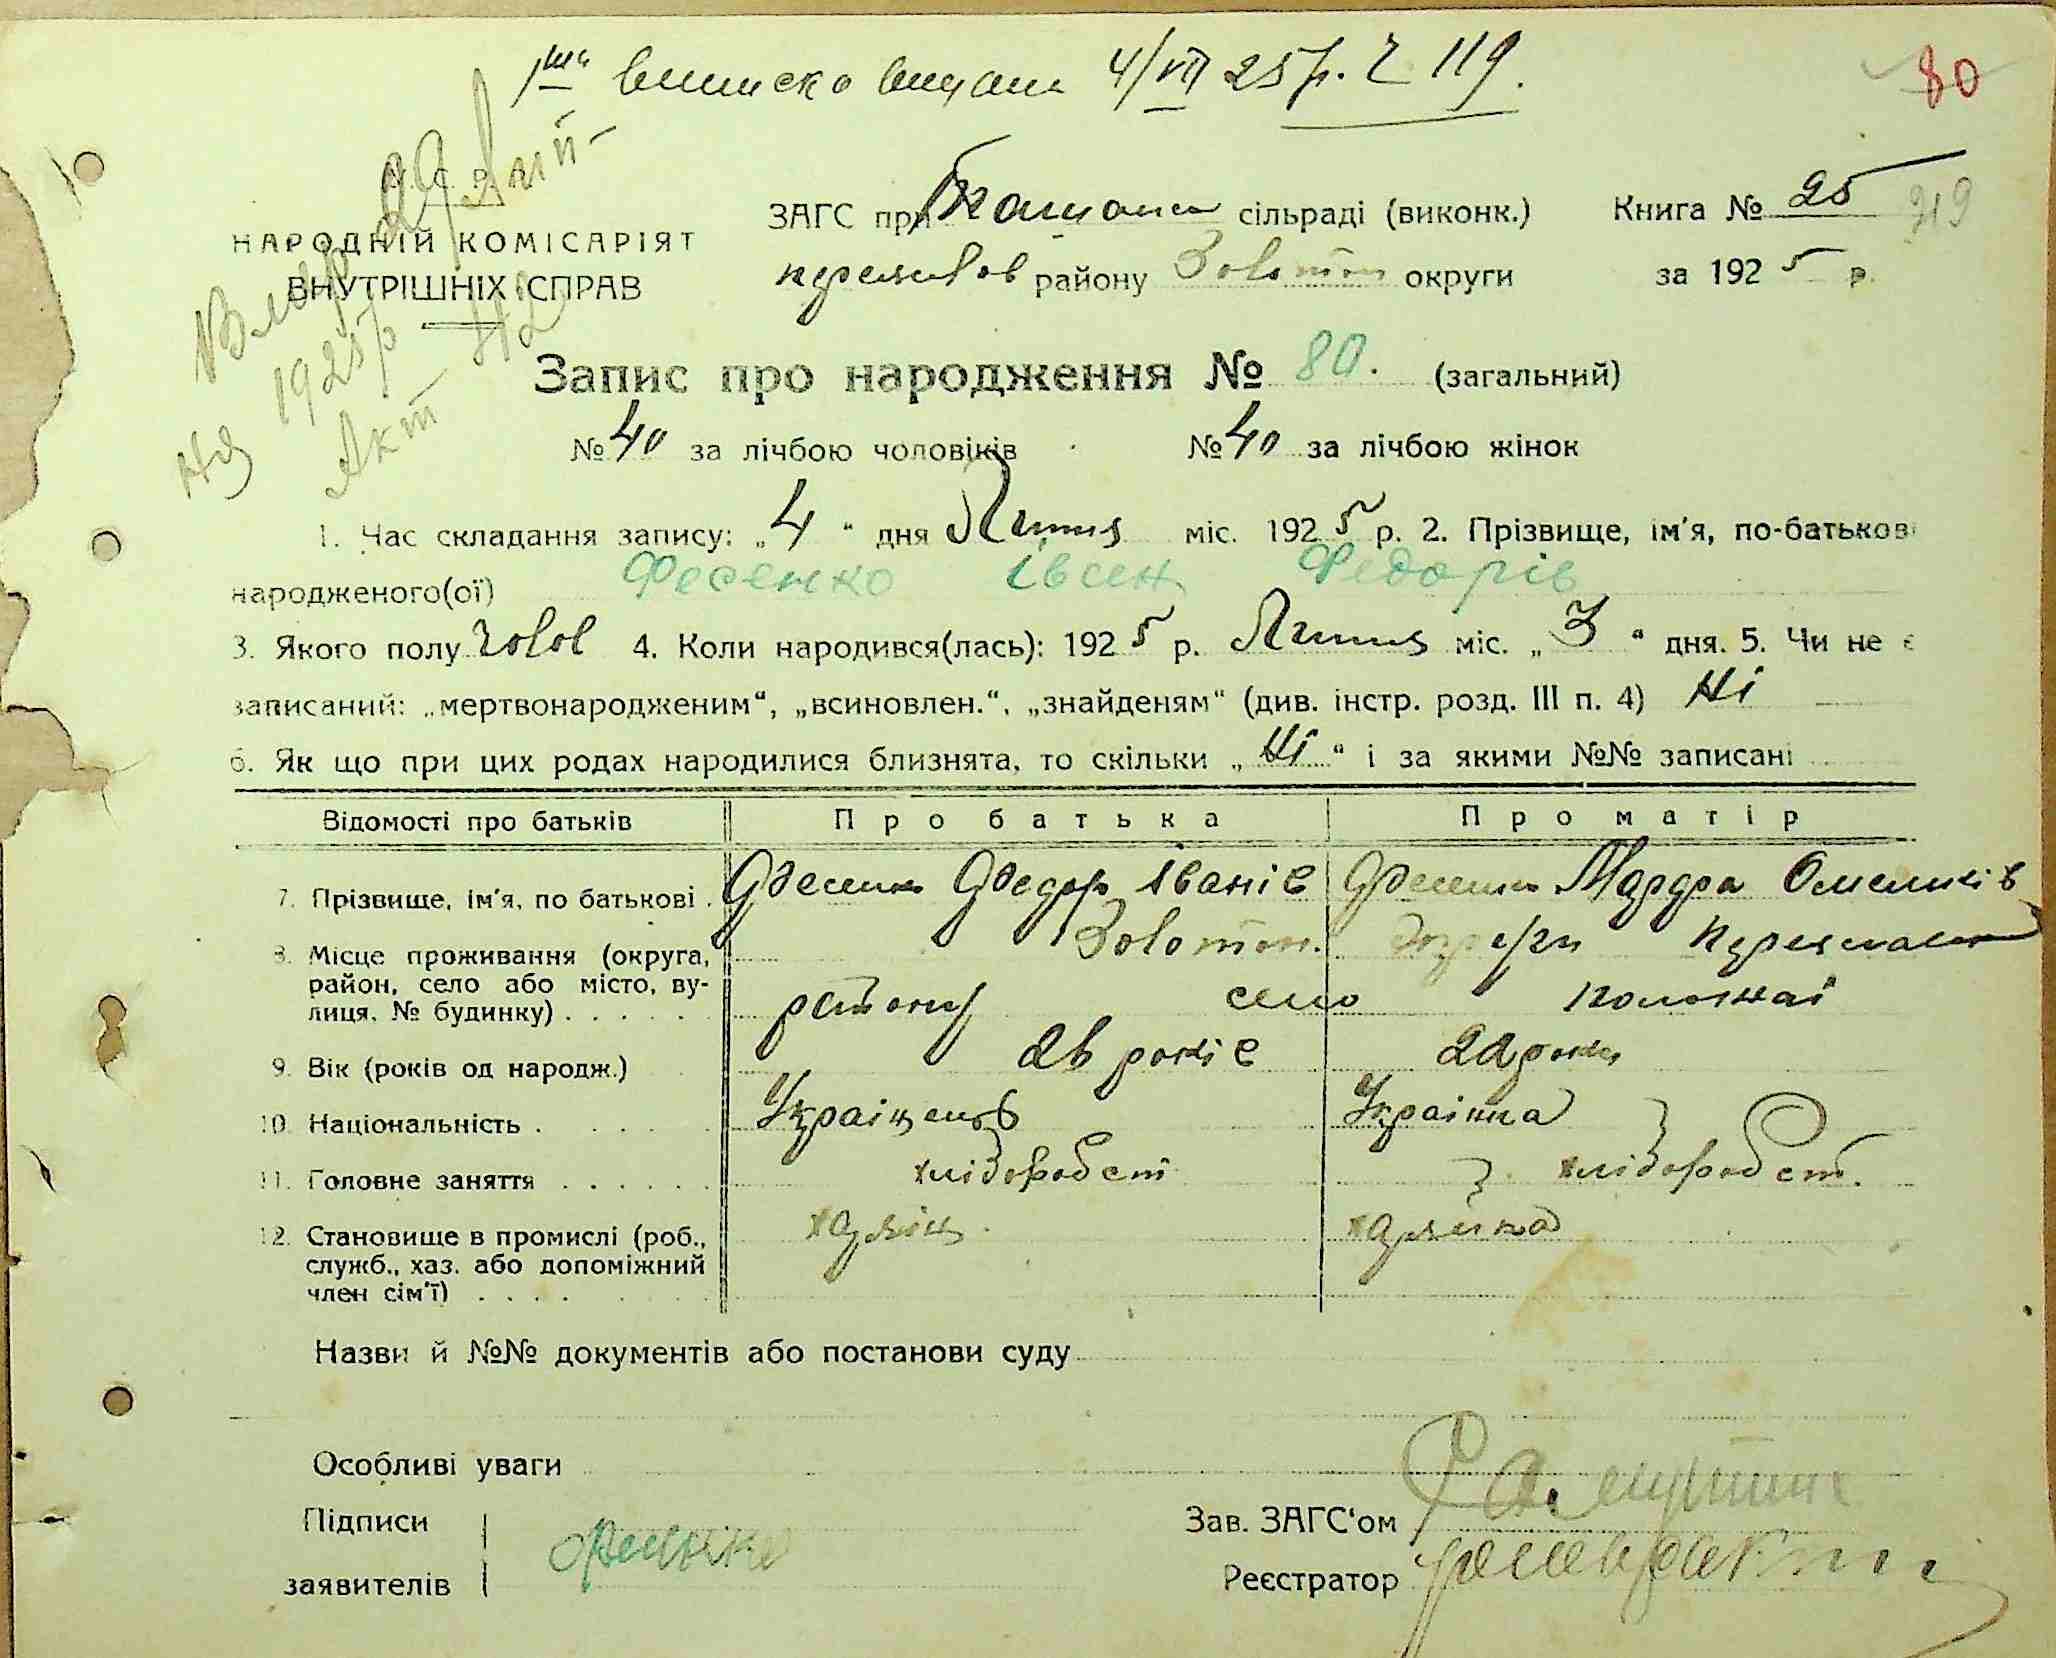 виписка видана 4/VII 25 р. Ч 119.
80
У. С. Р. Р.
НАРОДНІЙ КОМІСАРІЯТ
ВНУТРІШНІХ СПРАВ
Вмер 29
1925 р
Акт 42
ЗАГС при сільраді (виконк.)
Книга № 25
319
район у Золотон округи
за 1925 р.
Запис про народження № 80. (загальний)
№ 40 за лічбою чоловіків № 40 за лічбою жінок
1. Час складання запису: „4“ дня Липця міс. 1925 р. 2. Прізвище, ім'я, по-батькові
народженого(ої) Фесенко Івсен Федорів
3. Якого полу чолов 4. Коли народився(лась): 1925 р. Липця міс. „3“ дня. 5. Чи не є
записаний: „мертвонародженим“, „всиновлен.“, „знайденям“ (див. інстр. розд. III п. 4) Ні
6. Як що при цих родах народилися близнята, то скільки „Ні“ і за якими №№ записані
Відомості про батьків Про батька Про матір
7. Прізвище, ім'я, по батькові . Фесенко Федор Іванів Фесенко Мархва Омельків
8. Місце проживання (округа, Золотон. округи Переяслав
район, село або місто, ву- району село
лиця, № будинку) . . . . . .
9. Вік (років од народж.) 26 років 22 роки
10. Національність . Українець Українка
11. Головне заняття . . . . . . хліборобст хліборобст.
12. Становище в промислі (роб., хазяїн. хазяйка
служб., хаз. або допоміжний
член сім'ї) . . . .
Назви й №№ документів або постанови суду
Особливі уваги
Підписи
заявителів Фесенко
Зав. ЗАГС'ом
Реєстратор